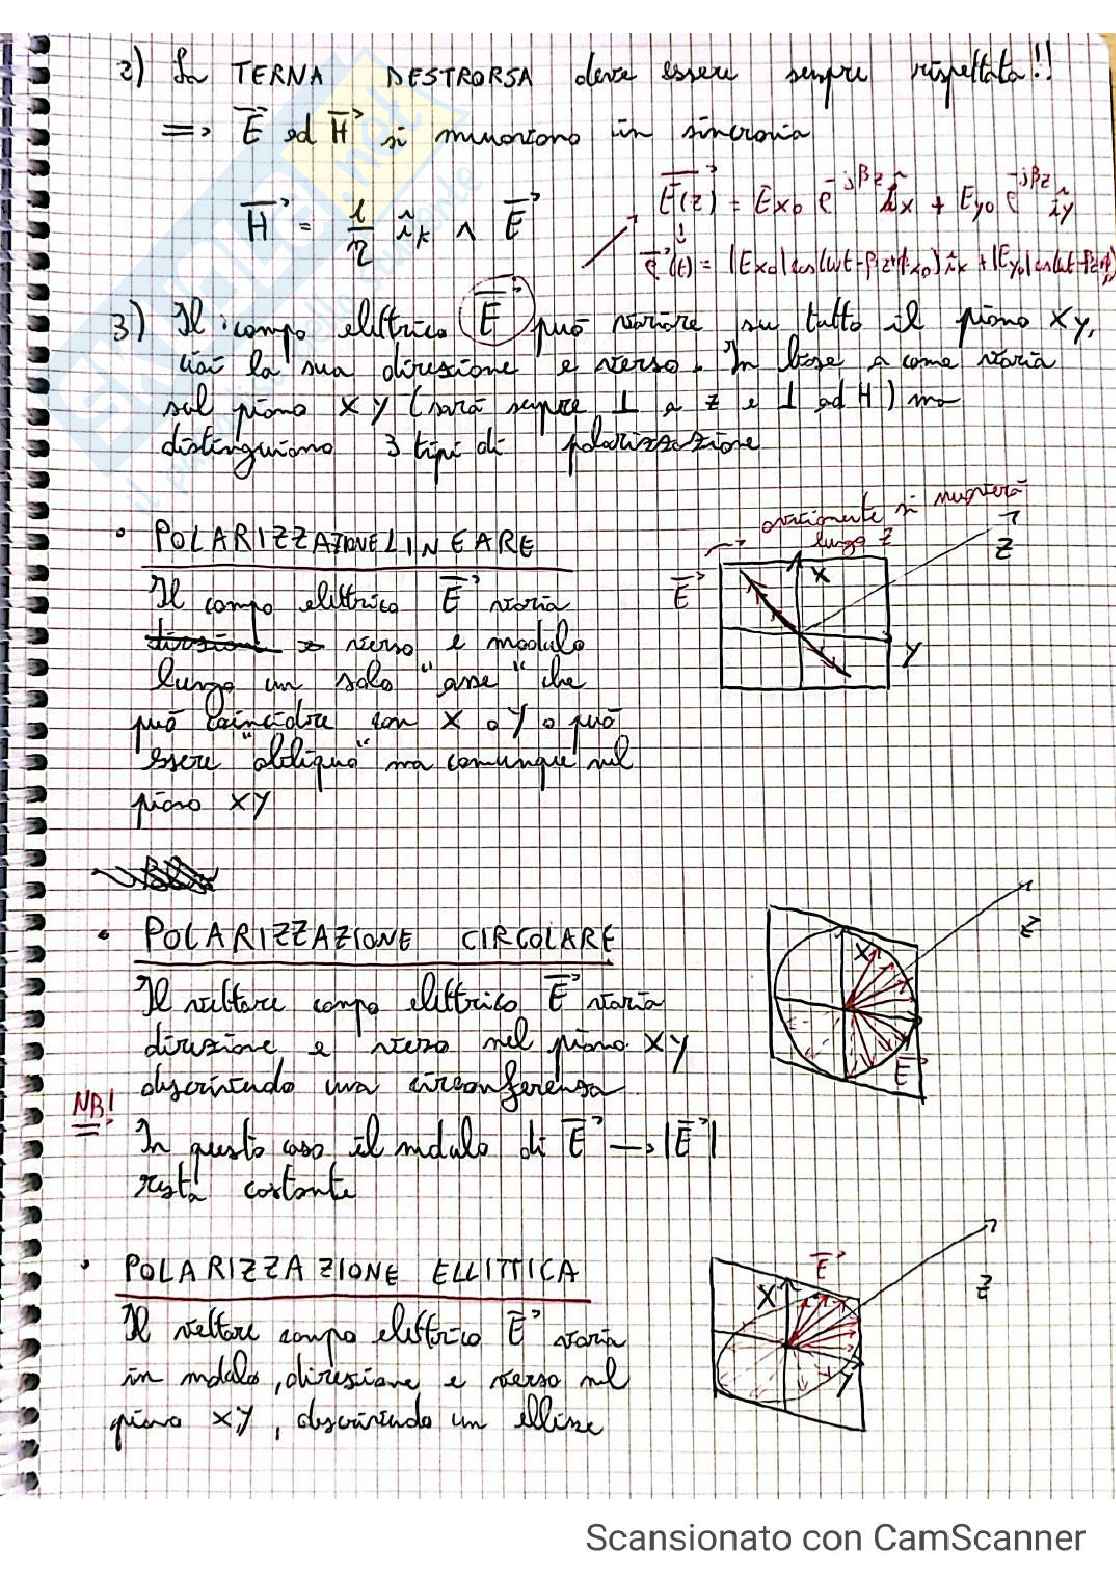 2) La TERNA DESTRORSA deve essere sempre rispettata!!
=> E ed H si muovono in sincronia
H = 1/η i_k ∧ E
E(z) = Ex0 e^-jβz i_x + Ey0 e^-jβz i_y
e(t) = |Ex0| cos(wt-βz+φx0) i_x + |Ey0| cos(wt-βz+φ
3) Il campo elettrico E può variare su tutto il piano XY,
cioè la sua direzione e verso. In base a come varia
sul piano XY (sarà sempre ⊥ a z e ⊥ ad H) ma
distinguiamo 3 tipi di polarizzazione
• POLARIZZAZIONE LINEARE
Il campo elettrico E varia
verso e modulo
lungo un solo "asse" che
può coincidere con X o Y o può
essere "obliquo" ma comunque nel
piano XY
ovviamente si muoverà
lungo z
E
X
Y
Z
• POLARIZZAZIONE CIRCOLARE
Il vettore campo elettrico E varia
direzione e verso nel piano XY
descrivendo una circonferenza
NB!
In questo caso il modulo di E → |E|
resta costante
X
E
Z
• POLARIZZAZIONE ELLITTICA
Il vettore campo elettrico E varia
in modulo, direzione e verso nel
piano XY, descrivendo un ellisse
E
X
Y
Z
Scansionato con CamScanner